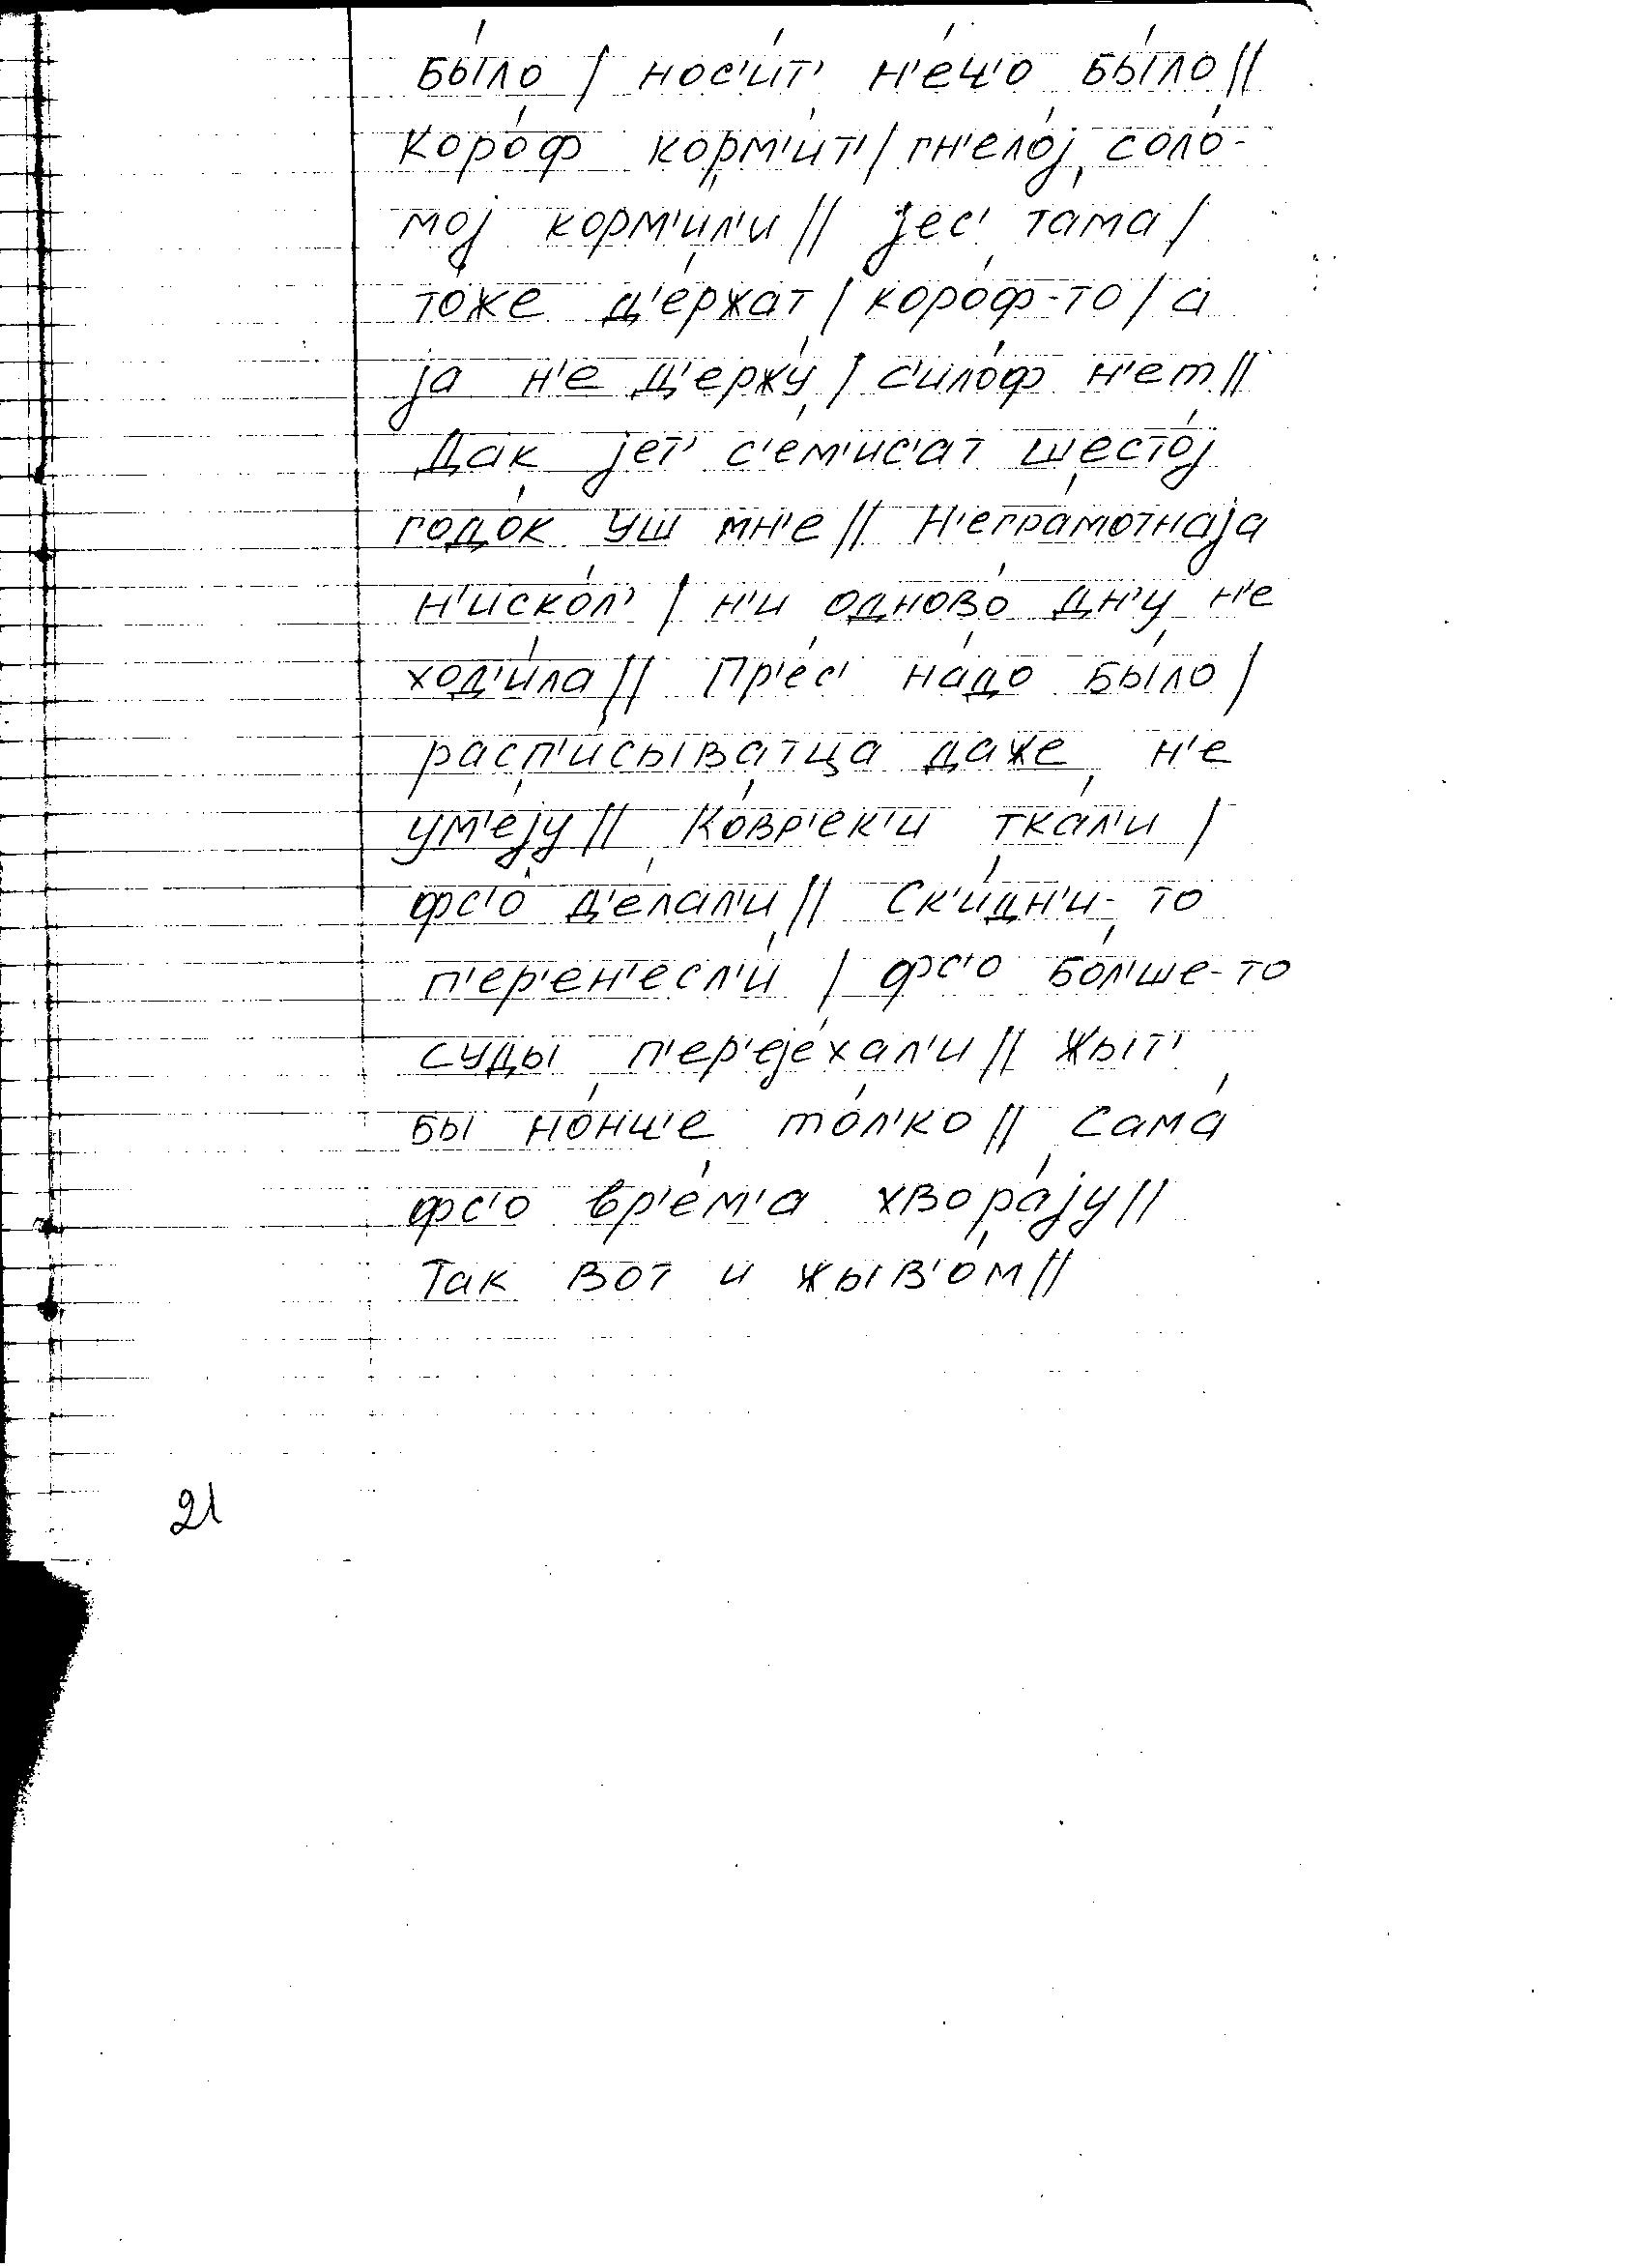 бы́ло / нос'и́т' н'е́ч'о бы́ло //
Коро́ф корм'и́т' / гн'ело́j соло́-
моj корм'и́л'и // jес' та́ма /
то́же д'е́ржат / коро́ф-то / а
jа н'е д'ержу́ / с'ило́ф н'ет //
Дак jет' с'е́м'ис'ат шесто́j
годо́к уш мн'е // Н'егра́мотнаjа
н'иско́л' / н'и одново́ дн'у н'е
ход'и́ла // Пр'ес' на́до бы́ло /
расп'и́сыватца даже н'е
ум'е́jу // Ко́вр'ек'и тка́л'и /
фс'о д'е́лал'и // Ск'и́дн'и-то
п'ер'ен'есл'и́ / фс'о бо́л'ше-то
суды п'ер'еjе́хал'и // Жыт'
бы но́нч'е то́л'ко // Сама́
фс'о вр'е́м'а хвора́jу //
Так вот и жыв'о́м //
21